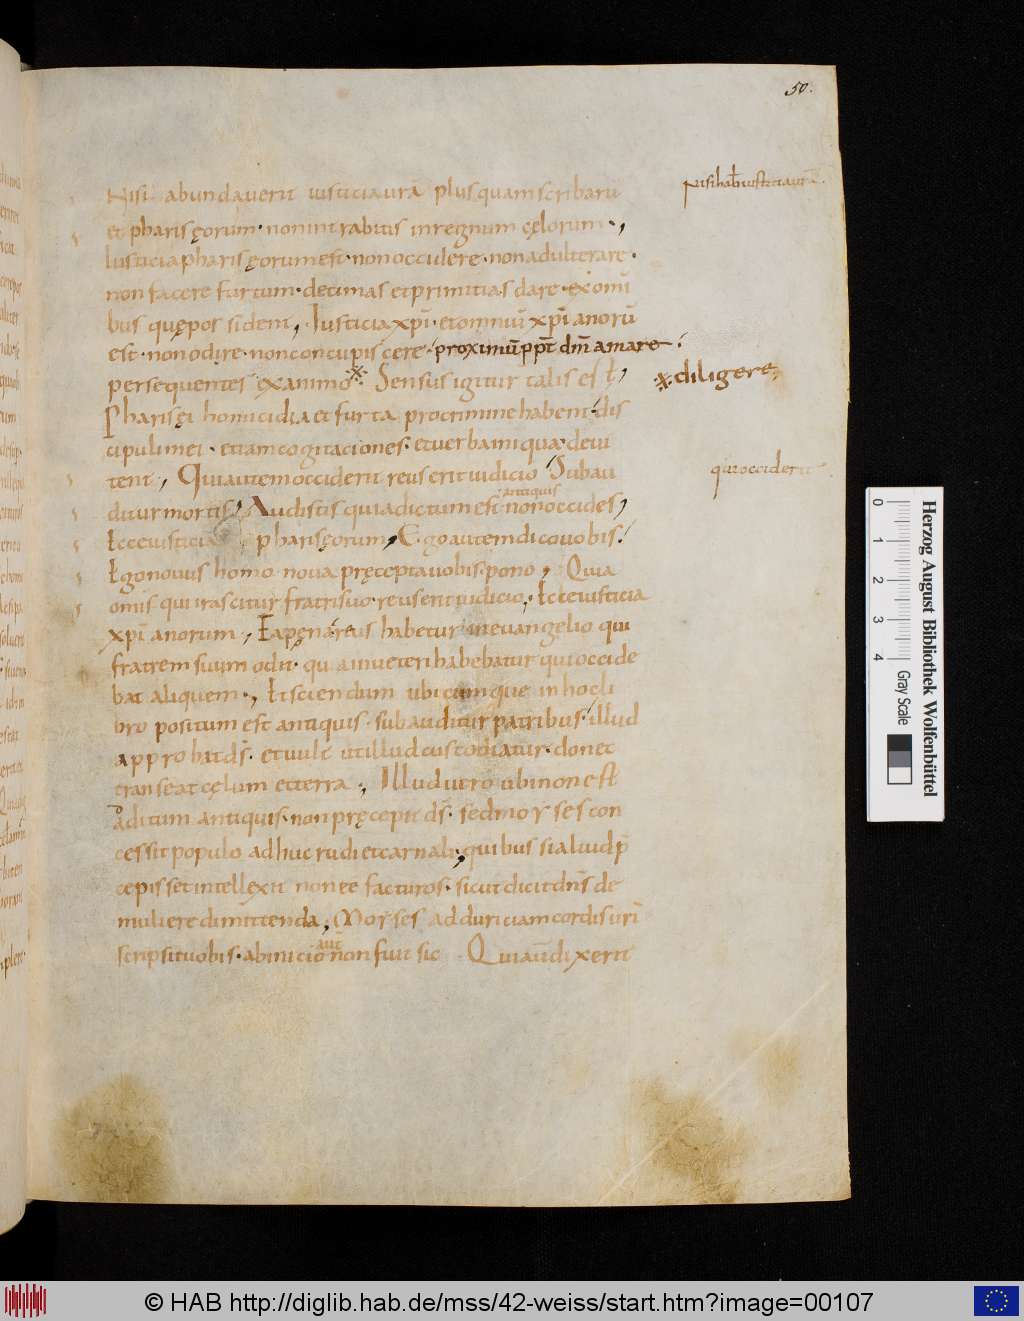 50.
Nisi abundaverit iusticia urā plus quam scribarū
et pharisęorum· non intrabitis in regnum cęlorum·,
Iusticia pharisęorum est· non occidere· non adulterare·
non facere furtum· decimas et primitias dare· ex omī
bus quę possident, Iusticia xp̄i· et omniū xp̄ianorū
est· non odire· non concupiscere· proximū ꝓpt̄ dm̄ amare·
persequentes ex animo Sensus igitur talis est,
diligere,
Pharisęi homicidia et furta pro crimine habent· dis
cipuli mei· etiam cogitaciones· et verba iniqua· devi
tent, Qui autem occiderit reus erit iudicio Subau
ditur mortis, Audistis quia dictum est antiquis non occides,
Ecce iusticia pharisęorum, Ego autem dico vobis.
Ego novus homo nova pręcepta vobis pono, Quia
omīs qui irascitur fratri suo· reus erit iudicio, Ecce iusticia
xp̄ianorum, Ea pena reus habetur in evangelio qui
fratrem suum odit· qua in veteri habebatur qui occide
bat aliquem·, Et sciendum ubicumque in hoc li
bro positum est antiquis· subauditur patribus· illud
approbat d̄s· et vult ut illud custodiatur· donec
transeat cęlum et terra, Illud vero ubi non est
aditum antiquis· non pręcepit d̄s· sed moyses con
cessit populo adhuc rudi et carnali, quibus si aliud p̄
cepisset intellexit non eē facturos· sicut dicit dn̄s de
muliere dimittenda, Moyses ad duriciam cordis urī
scripsit vobis· ab inicio aut̄ non fuit sic Qui aūt dixerit
nisi hab iusticia urā
qui occiderit
Herzog August Bibliothek Wolfenbüttel
0 1 2 3 4
Gray Scale
© HAB http://diglib.hab.de/mss/42-weiss/start.htm?image=00107